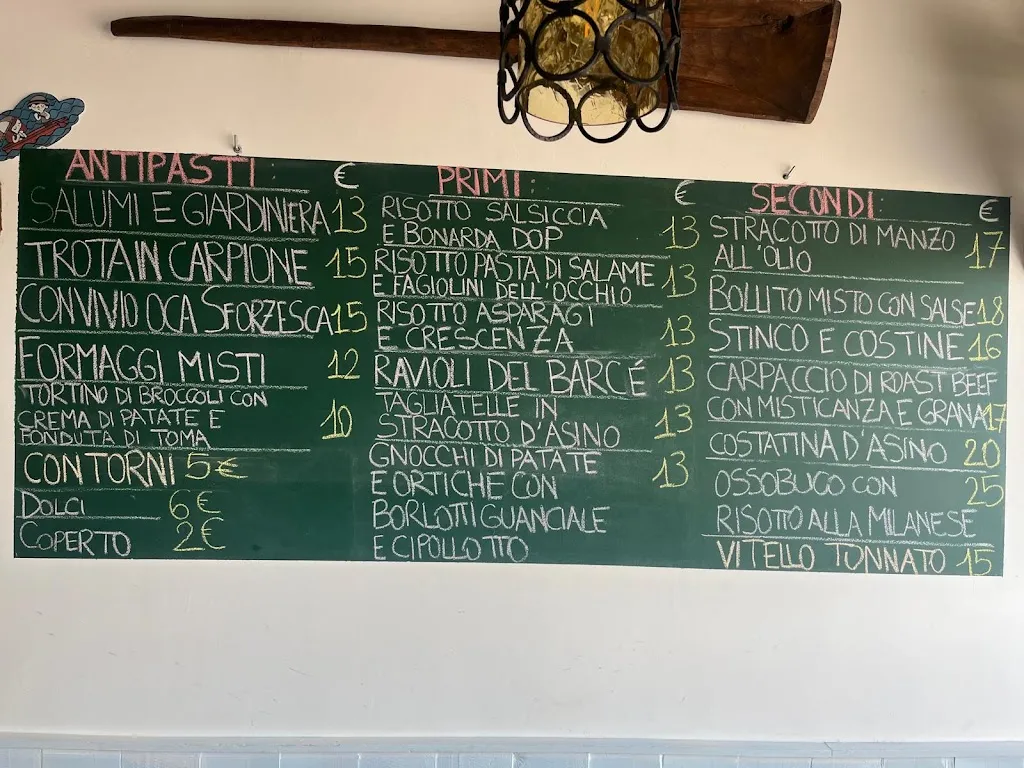 ANTIPASTI: €
SALUMI E GIARDINIERA 13
TROTA IN CARPIONE 15
CONVIVIO OCA SFORZESCA 15
FORMAGGI MISTI 12
TORTINO DI BROCCOLI CON
CREMA DI PATATE E 10
FONDUTA DI TOMA
CONTORNI 5€
DOLCI 6€
COPERTO 2€
PRIMI: €
RISOTTO SALSICCIA
E BONARDA DOP 13
RISOTTO PASTA DI SALAME
E FAGIOLINI DELL'OCCHIO 13
RISOTTO ASPARAGI
E CRESCENZA 13
RAVIOLI DEL BARCÉ 13
TAGLIATELLE IN
STRACOTTO D'ASINO 13
GNOCCHI DI PATATE 13
E ORTICHE CON
BORLOTTI GUANCIALE
E CIPOLLOTTO
SECONDI: €
STRACOTTO DI MANZO 17
ALL'OLIO
BOLLITO MISTO CON SALSE 18
STINCO E COSTINE 16
CARPACCIO DI ROAST BEEF
CON MISTICANZA E GRANA 17
COSTATINA D'ASINO 20
OSSOBUCO CON 25
RISOTTO ALLA MILANESE
VITELLO TONNATO 15